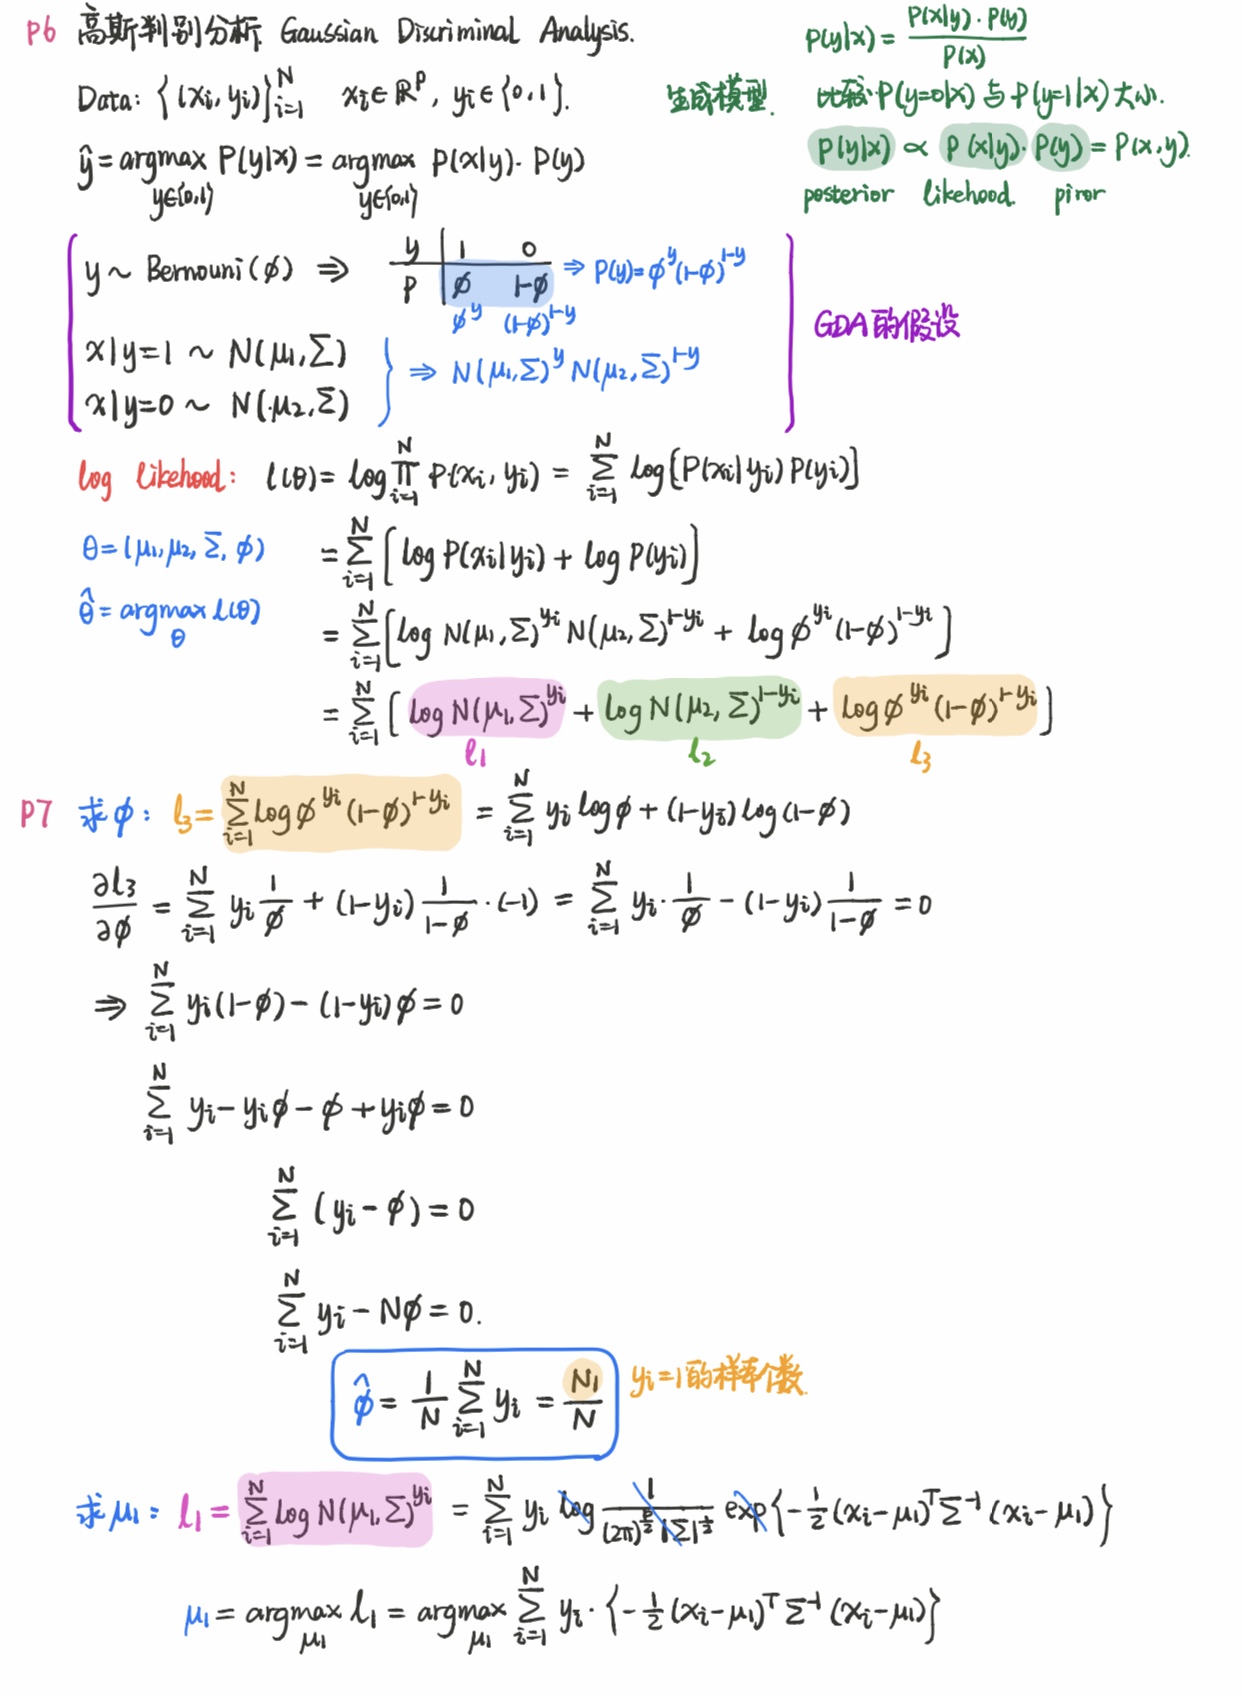 P6 高斯判别分析 Gaussian Discriminal Analysis.
P(y|x) = P(x|y)·P(y) / P(x)
Data: {(xi, yi)}_{i=1}^{N} xi∈ℝ^p, yi∈{0,1}.
生成模型. 比较 P(y=0|x) 与 P(y=1|x) 大小.
ŷ = argmax_{y∈{0,1}} P(y|x) = argmax_{y∈{0,1}} P(x|y)·P(y)
P(y|x) ∝ P(x|y)·P(y) = P(x,y).
posterior likehood. piror
y ~ Bernouni(φ) ⇒ y | 1 0 ⇒ P(y)=φ^y(1-φ)^{1-y}
P | φ 1-φ
φ^y (1-φ)^{1-y}
GDA的假设
x|y=1 ~ N(μ1, Σ)
⇒ N(μ1,Σ)^y N(μ2,Σ)^{1-y}
x|y=0 ~ N(μ2, Σ)
log likehood: l(θ) = log ∏_{i=1}^{N} P(xi, yi) = ∑_{i=1}^{N} log[P(xi|yi) P(yi)]
θ=(μ1, μ2, Σ, φ) = ∑_{i=1}^{N} [log P(xi|yi) + log P(yi)]
θ̂ = argmax_θ l(θ) = ∑_{i=1}^{N} [log N(μ1,Σ)^{yi} N(μ2,Σ)^{1-yi} + log φ^{yi}(1-φ)^{1-yi}]
= ∑_{i=1}^{N} [log N(μ1,Σ)^{yi} + log N(μ2,Σ)^{1-yi} + log φ^{yi}(1-φ)^{1-yi}]
l1 l2 l3
P7 求φ: l3 = ∑_{i=1}^{N} log φ^{yi}(1-φ)^{1-yi} = ∑_{i=1}^{N} yi log φ + (1-yi) log(1-φ)
∂l3/∂φ = ∑_{i=1}^{N} yi 1/φ + (1-yi) 1/(1-φ)·(-1) = ∑_{i=1}^{N} yi·1/φ - (1-yi) 1/(1-φ) = 0
⇒ ∑_{i=1}^{N} yi(1-φ) - (1-yi)φ = 0
∑_{i=1}^{N} yi - yiφ - φ + yiφ = 0
∑_{i=1}^{N} (yi - φ) = 0
∑_{i=1}^{N} yi - Nφ = 0.
φ̂ = 1/N ∑_{i=1}^{N} yi = N1/N yi=1的样本个数.
求μ1: l1 = ∑_{i=1}^{N} log N(μ1,Σ)^{yi} = ∑_{i=1}^{N} yi log 1/((2π)^{p/2}|Σ|^{1/2}) exp{-1/2(xi-μ1)^T Σ^{-1}(xi-μ1)}
μ1 = argmax_{μ1} l1 = argmax_{μ1} ∑_{i=1}^{N} yi·{-1/2(xi-μ1)^T Σ^{-1}(xi-μ1)}